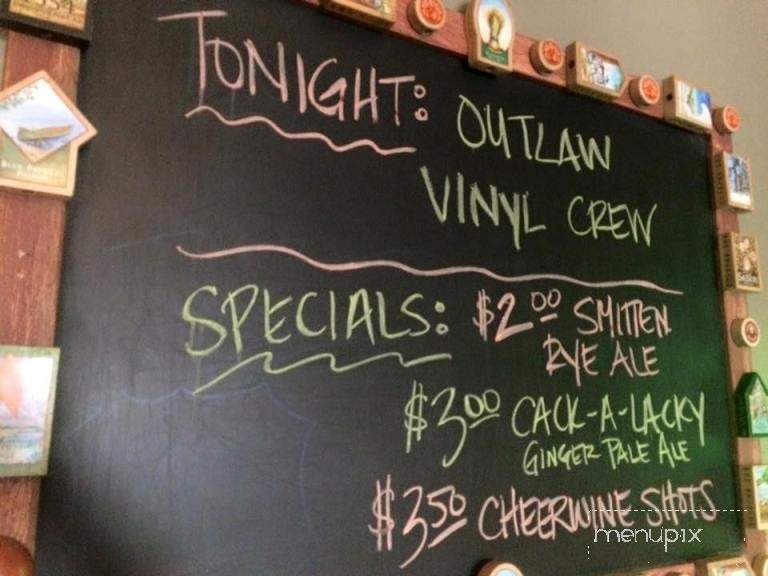 TONIGHT: OUTLAW
VINYL CREW
SPECIALS: $2.00 SMITTEN
RYE ALE
$3.00 CACK-A-LACKY
GINGER PALE ALE
$3.50 CHEERWINE SHOTS
menupix